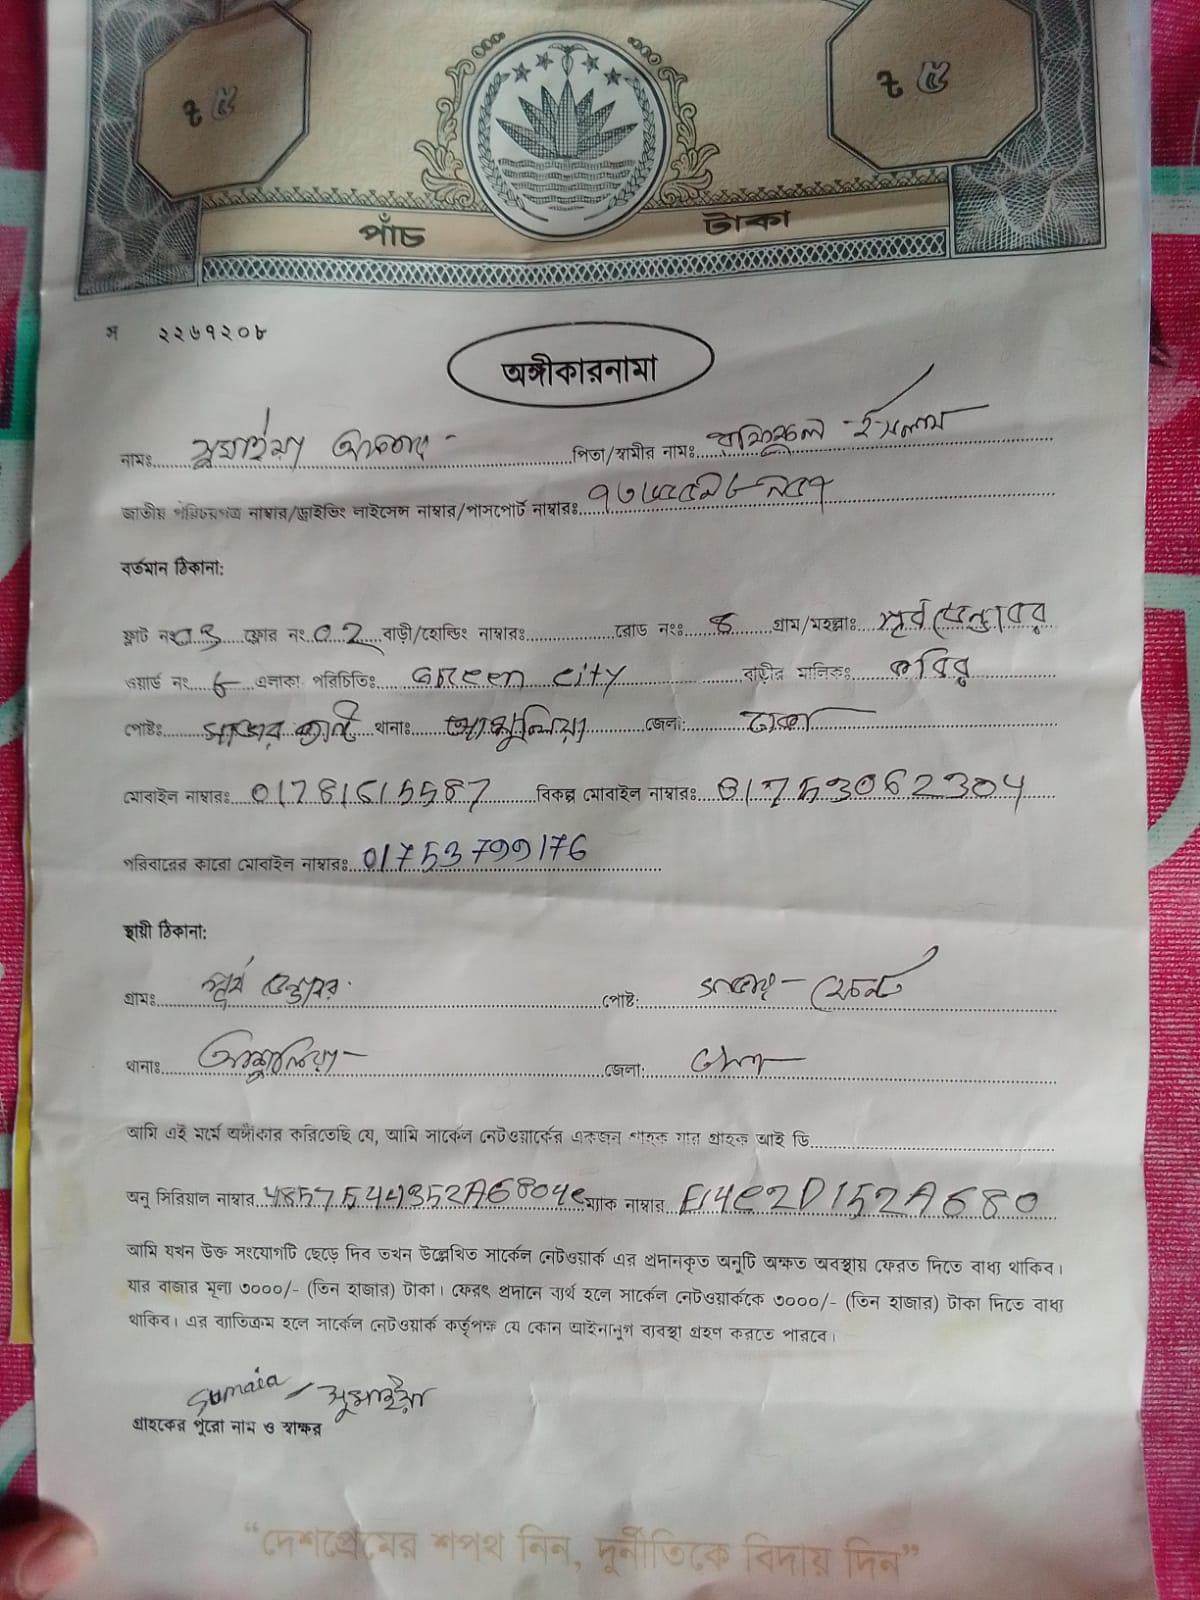 ৳ ৫ ৳ ৫
পাঁচ টাকা
স ২২৬৭২০৮
অঙ্গীকারনামা
নামঃ সুমাইয়া আক্তার পিতা/স্বামীর নামঃ রফিকুল ইসলাম
জাতীয় পরিচয়পত্র নাম্বার/ড্রাইভিং লাইসেন্স নাম্বার/পাসপোর্ট নাম্বারঃ
বর্তমান ঠিকানা:
ফ্লাট নং 03 ফ্লোর নং 02 বাড়ী/হোল্ডিং নাম্বারঃ রোড নংঃ গ্রাম/মহল্লাঃ
ওয়ার্ড নং এলাকা পরিচিতিঃ Green city বাড়ীর মালিকঃ কবির
পোষ্টঃ থানাঃ আশুলিয়া জেলা: ঢাকা
মোবাইল নাম্বারঃ বিকল্প মোবাইল নাম্বারঃ 01753062304
পরিবারের কারো মোবাইল নাম্বারঃ 01753799176
স্থায়ী ঠিকানা:
গ্রামঃ পোষ্ট:
থানাঃ আশুলিয়া জেলা: ঢাকা
আমি এই মর্মে অঙ্গীকার করিতেছি যে, আমি সার্কেল নেটওয়ার্কের একজন গ্রাহক যার গ্রাহক আই ডি
অনু সিরিয়াল নাম্বার ম্যাক নাম্বার E14C2D152A680
আমি যখন উক্ত সংযোগটি ছেড়ে দিব তখন উল্লেখিত সার্কেল নেটওয়ার্ক এর প্রদানকৃত অনুটি অক্ষত অবস্থায় ফেরত দিতে বাধ্য থাকিব।
যার বাজার মূল্য ৩০০০/- (তিন হাজার) টাকা। ফেরৎ প্রদানে ব্যর্থ হলে সার্কেল নেটওয়ার্ককে ৩০০০/- (তিন হাজার) টাকা দিতে বাধ্য
থাকিব। এর ব্যতিক্রম হলে সার্কেল নেটওয়ার্ক কর্তৃপক্ষ যে কোন আইনানুগ ব্যবস্থা গ্রহণ করতে পারবে।
Sumaia / সুমাইয়া
গ্রাহকের পুরো নাম ও স্বাক্ষর
“দেশপ্রেমের শপথ নিন, দুর্নীতিকে বিদায় দিন”